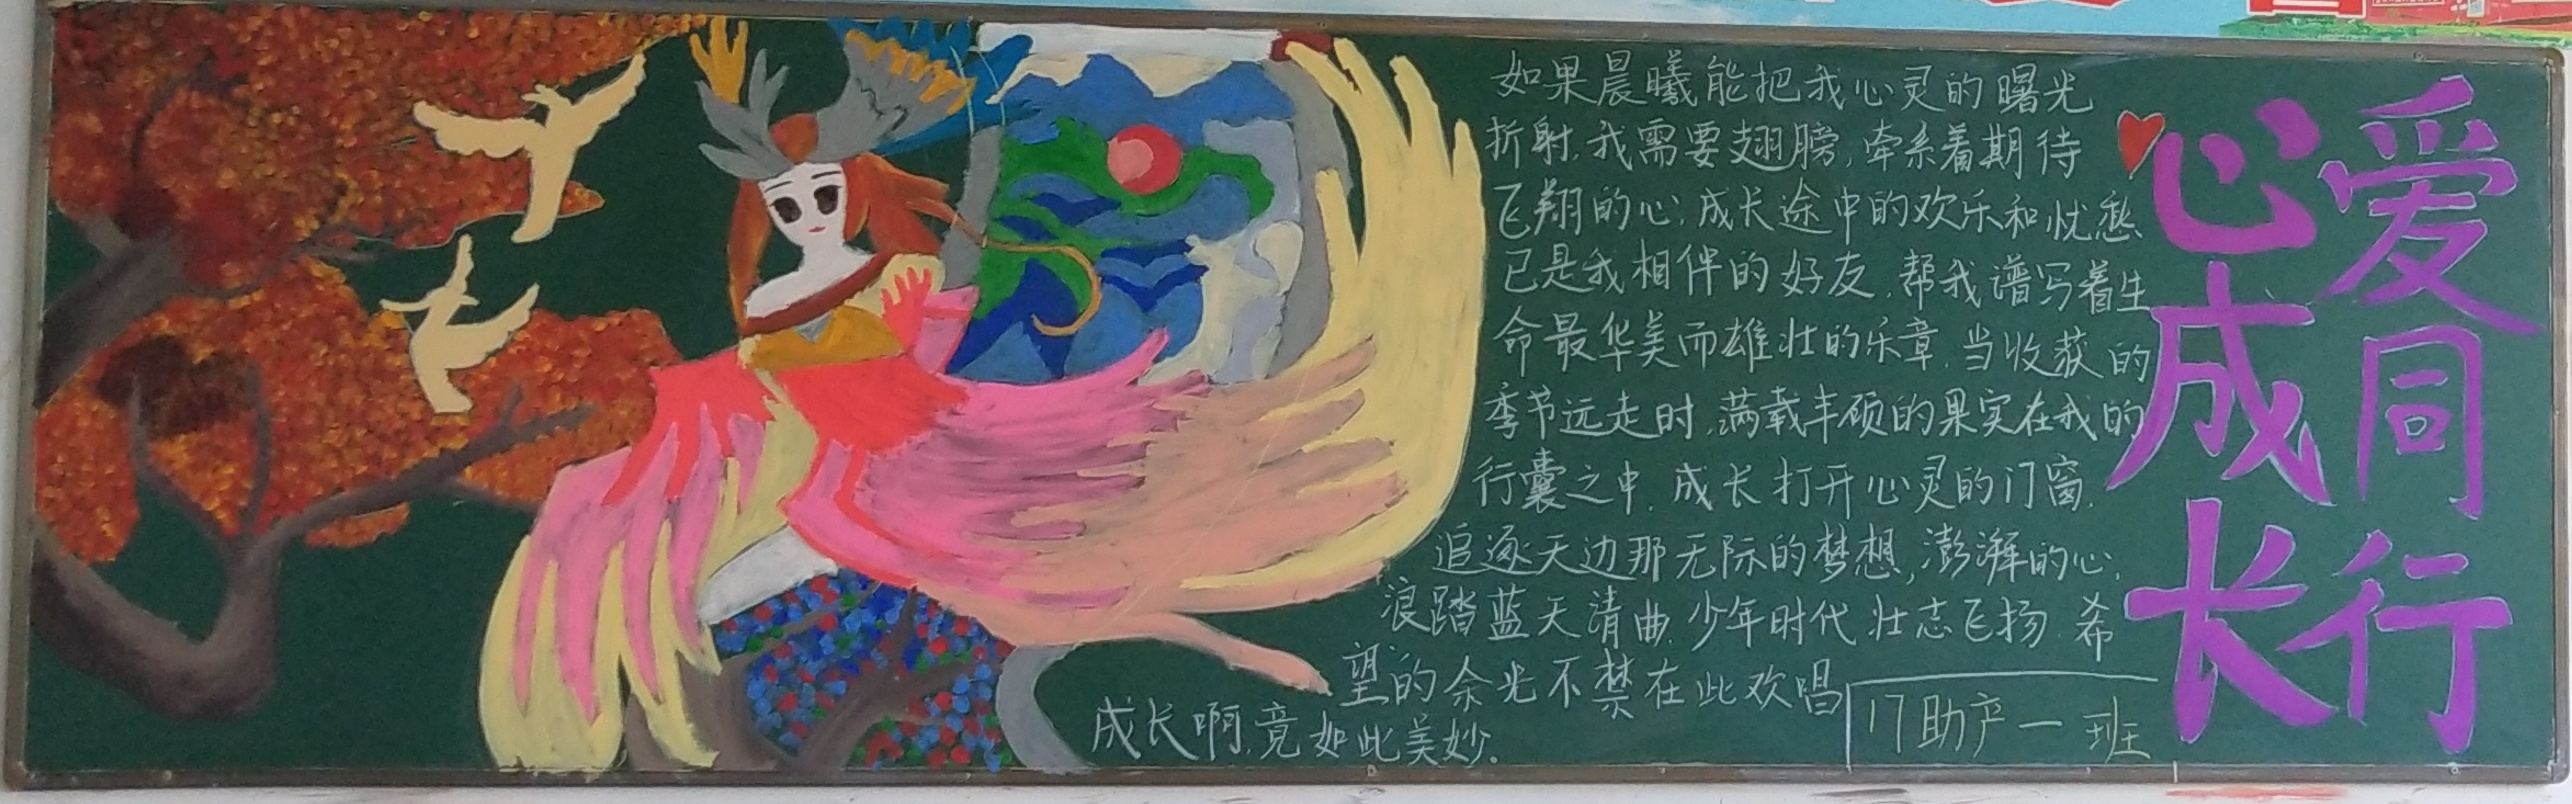 爱同行
心成长
如果晨曦能把我心灵的曙光
折射,我需要翅膀,牵系着期待
飞翔的心,成长途中的欢乐和忧愁
已是我相伴的好友,帮我谱写着生
命最华美而雄壮的乐章.当收获的
季节远走时,满载丰硕的果实在我的
行囊之中.成长打开心灵的门窗.
追逐天边那无际的梦想,澎湃的心,
浪踏蓝天清曲.少年时代壮志飞扬.希
望的余光不禁在此欢唱
成长啊,竟如此美妙.
17助产一班